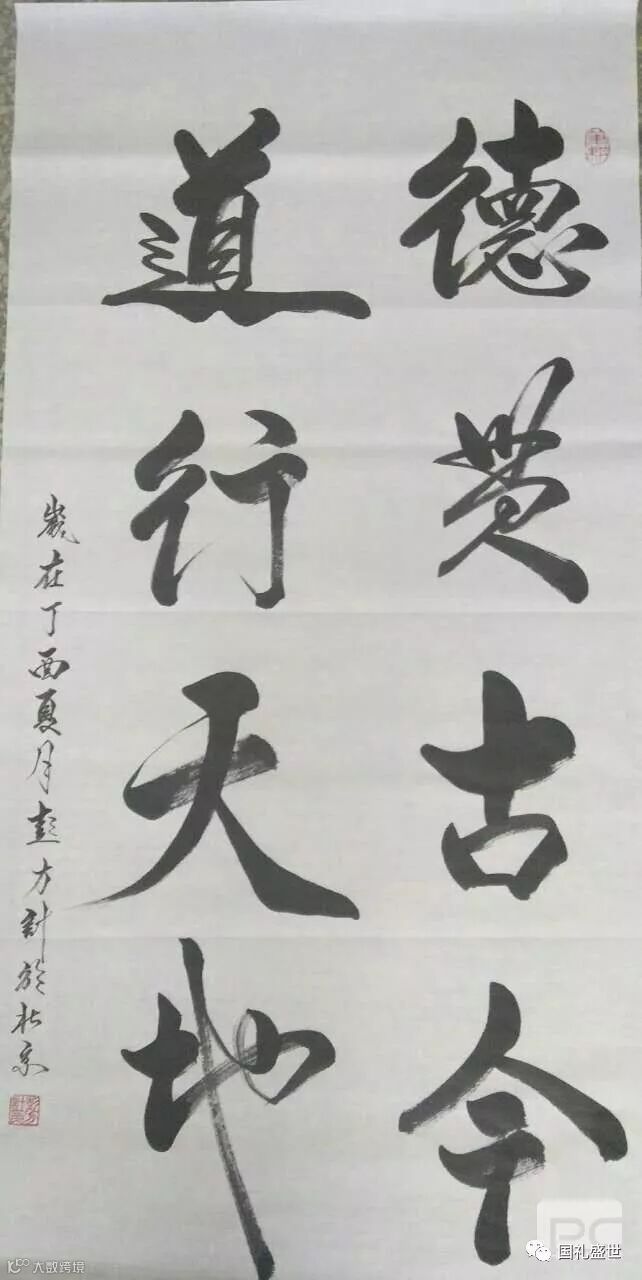 德贯古今
道行天地
歲在丁酉夏月彭方計於北京
大数跨境
国礼盛世